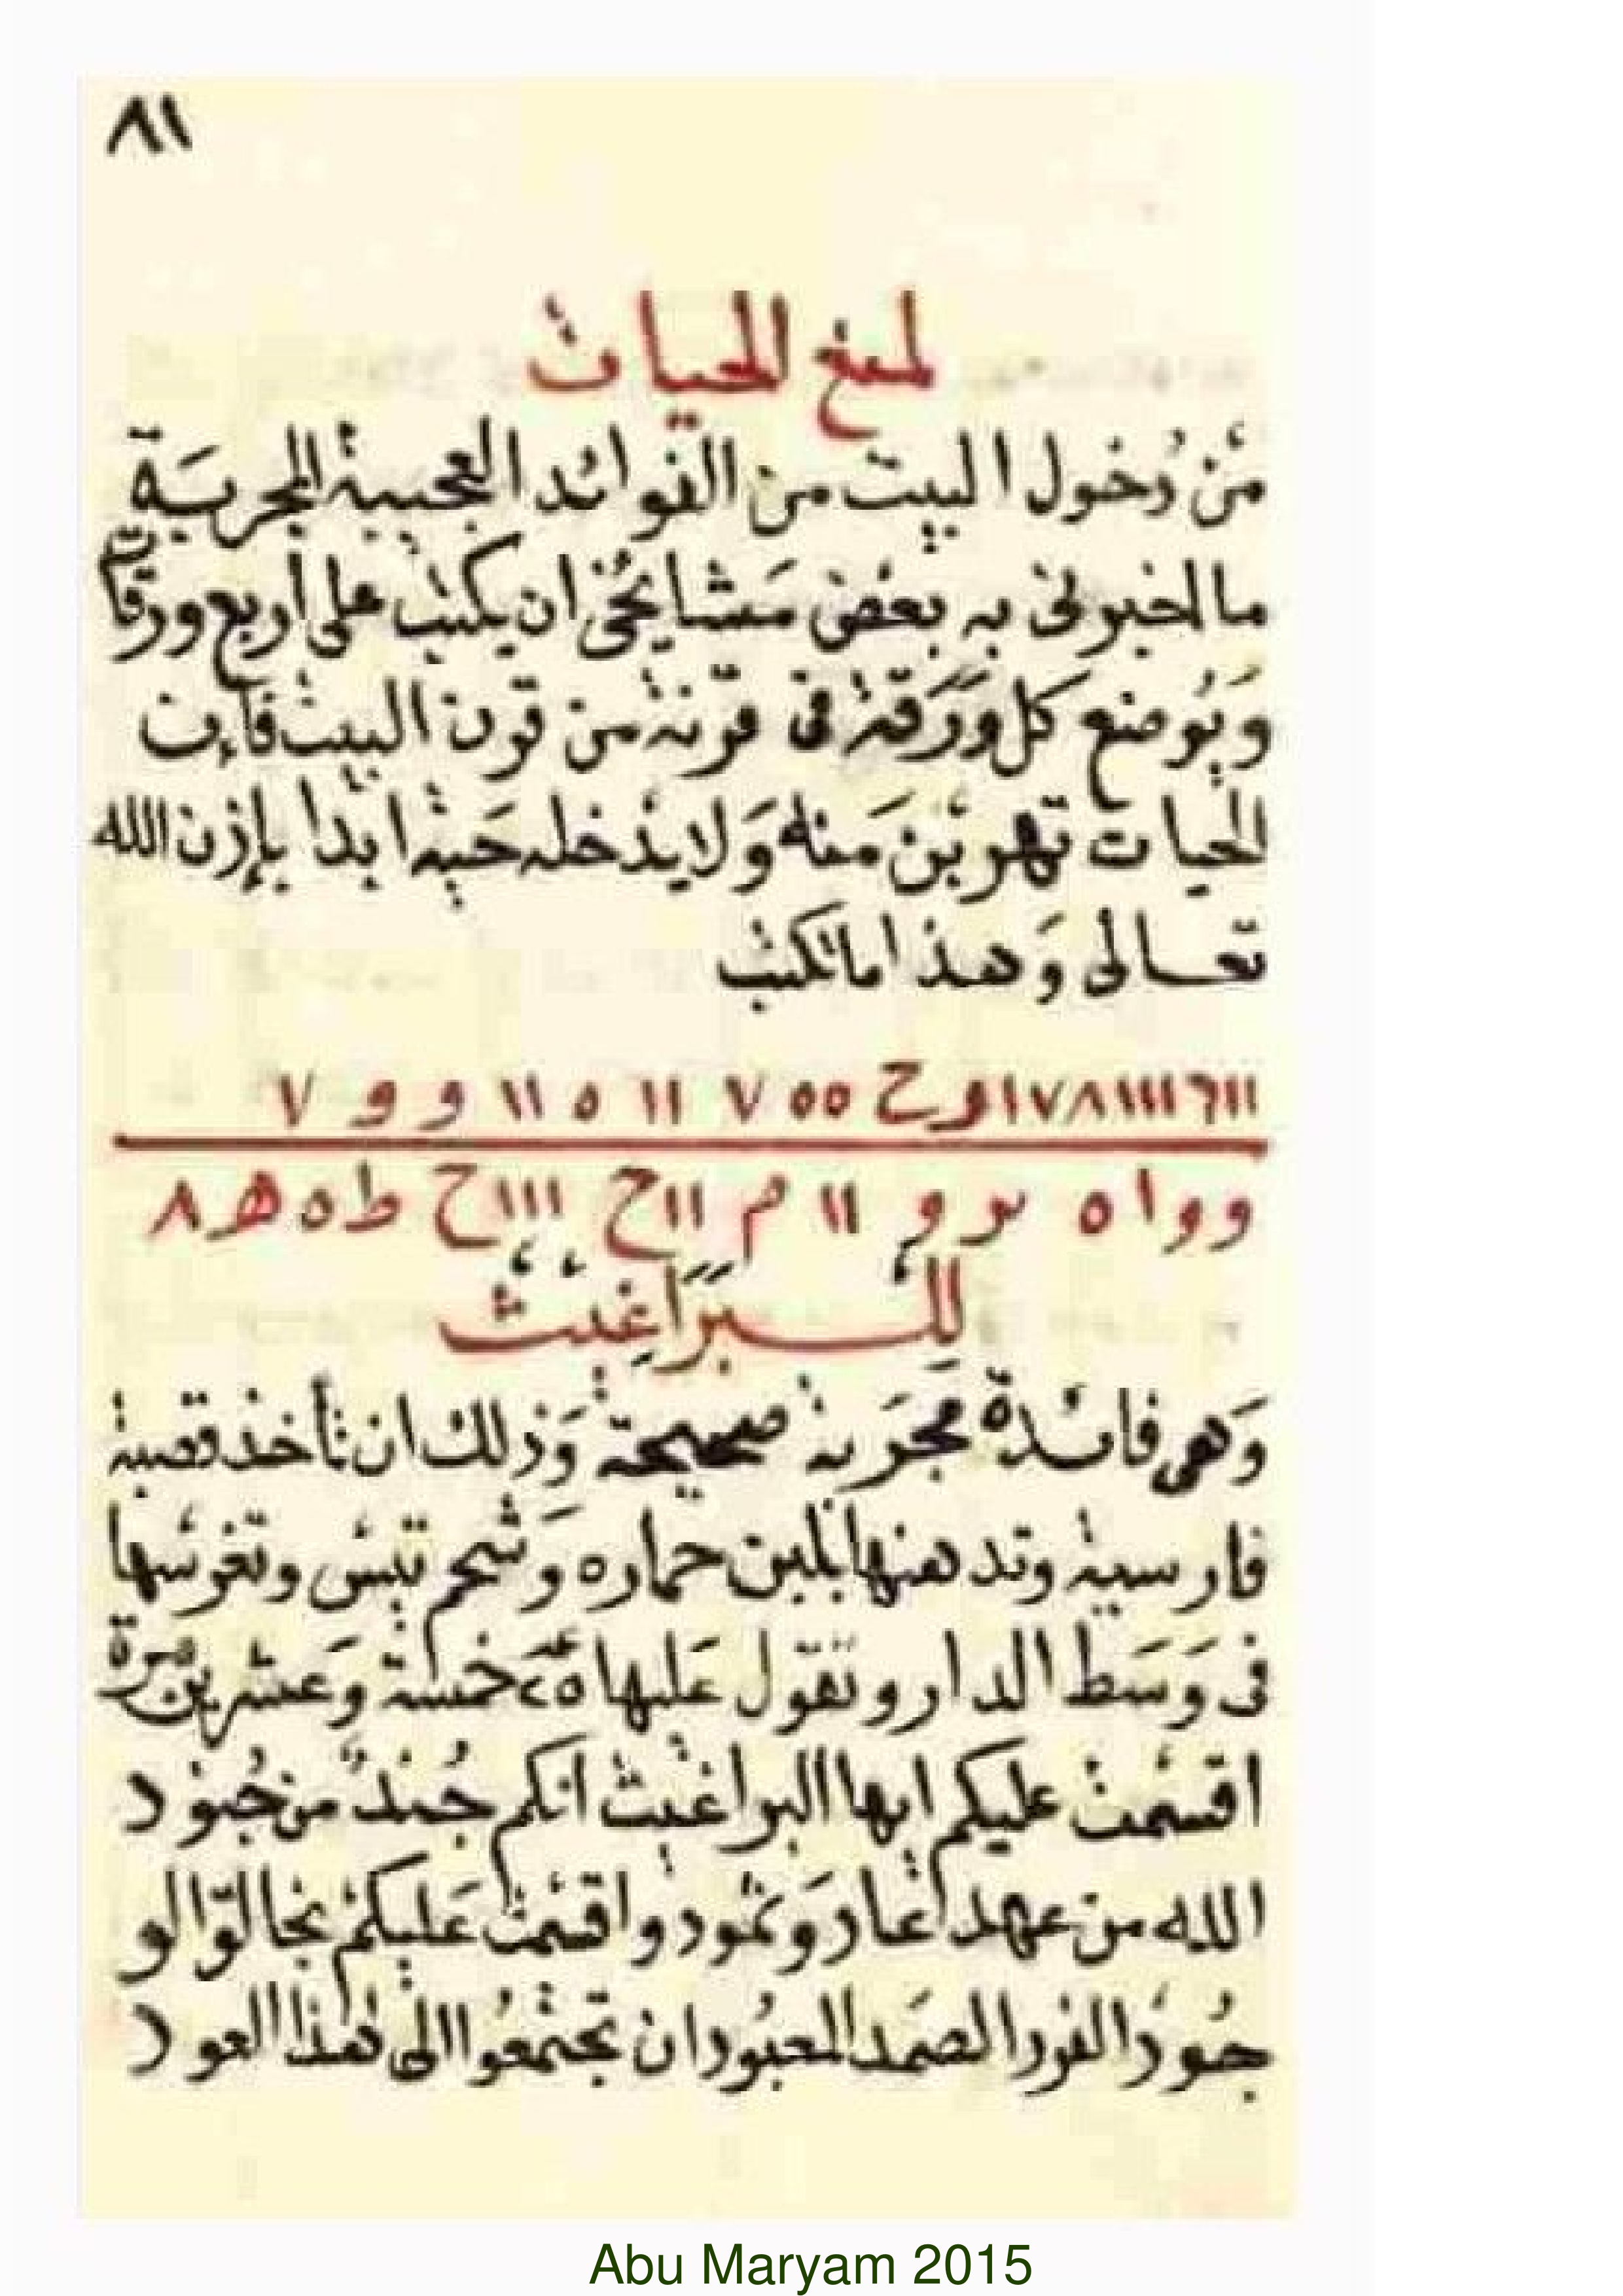 ٨١
لمنع الحيات
مَنْ دُخول البيت من الفوائد العجيبة المجربَة
ما اخبرنى به بعض مَشايخى ان يكتب على أربع ورقات
وَيُوضع كل وَرَقة فى قرنة من قرن البيت فإن
الحيات تهربْن مَنه وَلا يدْخله حَية ابدا بإذن الله
تعالى وَهذا ما تكتب
١١١٦١١١١٨٧١وح ٥٥ ٧ ١١ ٥ ١١ و و ٧
و و ا ٥ س و ١١ م ١١ح ١١١ح ط ٥ ه ٨
للبَرَاغِيث
وَهى فائدة مجَربة صحيحة وَذلك ان تأخذ قصبة
فارسية وتدهنها بلبن حماره وَشحم تيْس وتغرسْها
فى وَسَط الدار وتقول عَليها ٢٥ خمسَة وَعشرين مَرة
اقسَمْت عليكم ايها البراغيث انكم جُندٌ من جُنود
الله من عهد عاد وَثمود واقسَمْت عَليكمْ بخالق الو
جُود الفرد الصَمد المعبُود ان تجتمعُوا الى هَذا العود
Abu Maryam 2015